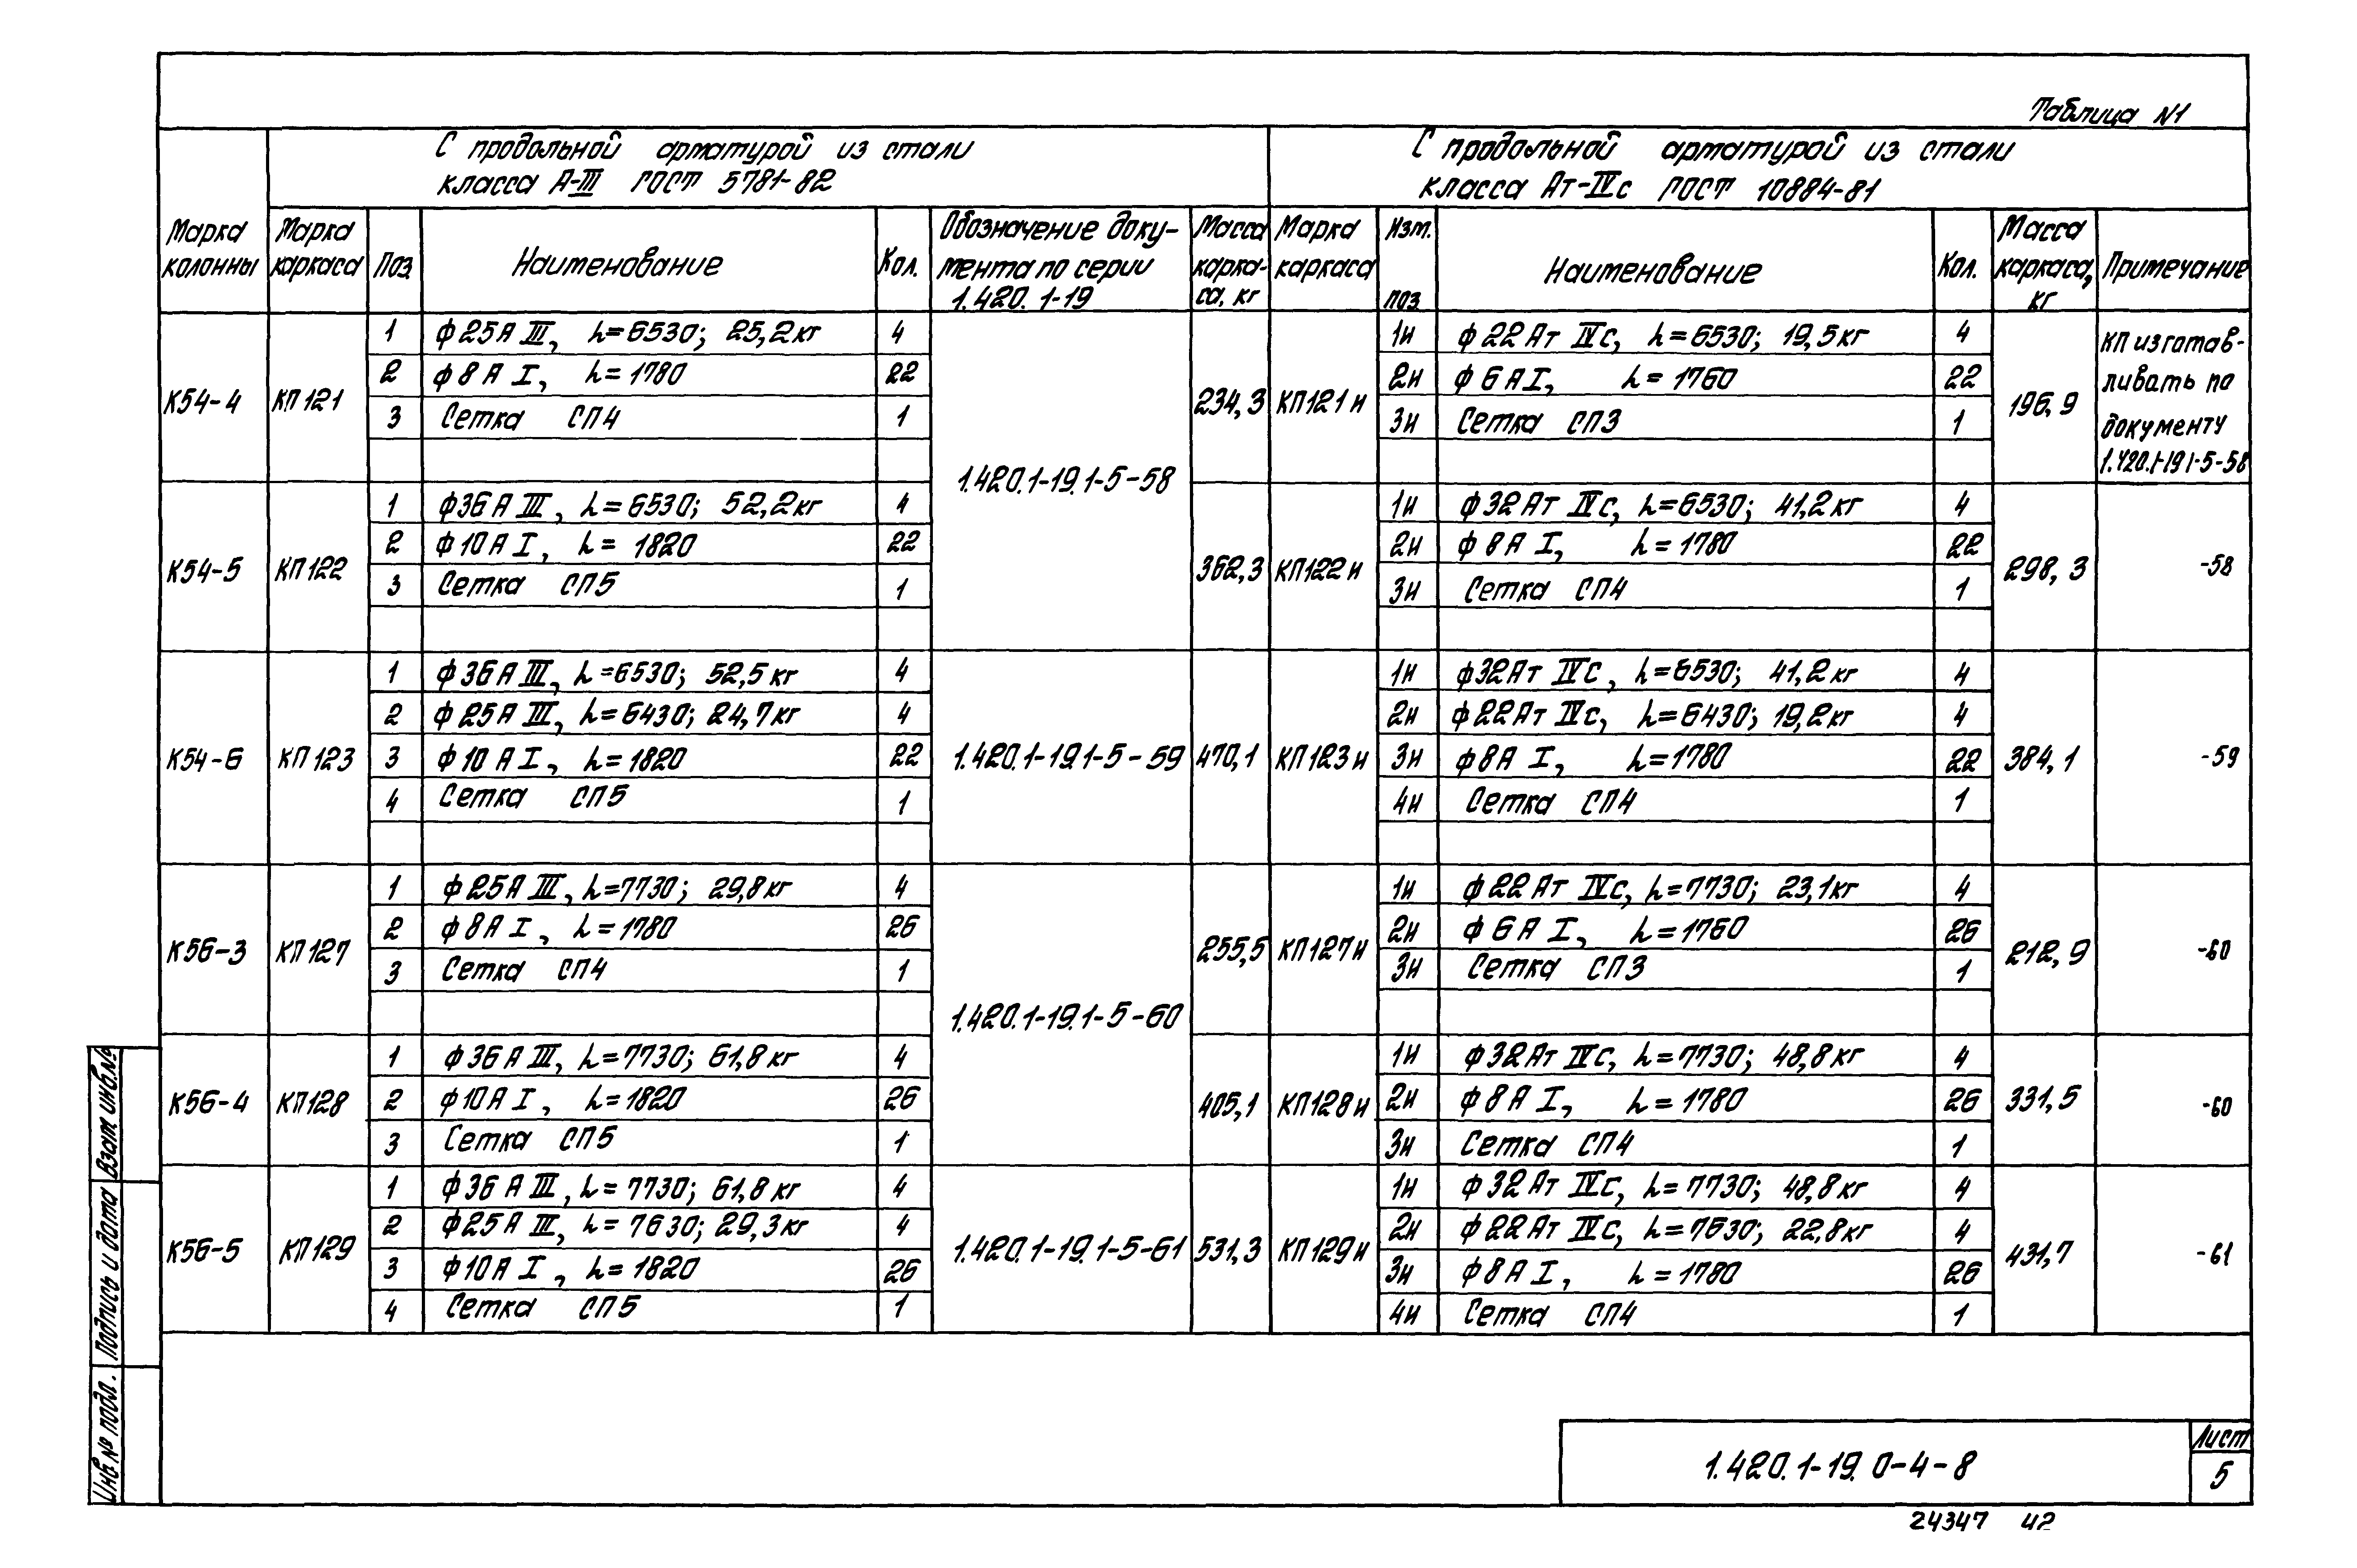 Таблица №1
С продольной арматурой из стали
класса А-III ГОСТ 5781-82
С продольной арматурой из стали
класса Ат-IVс ГОСТ 10884-81
Марка колонны
Марка каркаса
Поз.
Наименование
Кол.
Обозначение документа по серии 1.420.1-19
Масса каркаса, кг
Марка каркаса
Изм. поз.
Наименование
Кол.
Масса каркаса, кг
Примечание
К54-4 КП121
1 ф25А III, L=6530; 25,2кг 4
2 ф8А I, L=1780 22
3 Сетка СП4 1
1.420.1-19.1-5-58
234,3 КП121и
1и ф22Ат IVс, L=6530; 19,5кг 4
2и ф6АI, L=1760 22
3и Сетка СП3 1
196,9
КП изготав-
ливать по
документу
1.420.1-19 1-5-58
К54-5 КП122
1 ф36А III, L=6530; 52,2кг 4
2 ф10А I, L=1820 22
3 Сетка СП5 1
362,3 КП122и
1и ф32Ат IVс, L=6530; 41,2кг 4
2и ф8А I, L=1780 22
3и Сетка СП4 1
298,3 -58
К54-6 КП123
1 ф36А III, L=6530; 52,5кг 4
2 ф25А III, L=6430; 24,7кг 4
3 ф10А I, L=1820 22
4 Сетка СП5 1
1.420.1-19.1-5-59 470,1 КП123и
1и ф32Ат IVС, L=6530; 41,2кг 4
2и ф22Ат IVс, L=6430; 19,2кг 4
3и ф8А I, L=1780 22
4и Сетка СП4 1
384,1 -59
К56-3 КП127
1 ф25А III, L=7730; 29,8кг 4
2 ф8А I, L=1780 26
3 Сетка СП4 1
1.420.1-19.1-5-60
255,5 КП127и
1и ф22Ат IVс, L=7730; 23,1кг 4
2и ф6А I, L=1760 26
3и Сетка СП3 1
212,9 -60
К56-4 КП128
1 ф36А III, L=7730; 61,8кг 4
2 ф10А I, L=1820 26
3 Сетка СП5 1
405,1 КП128и
1и ф32Ат IVС, L=7730; 48,8кг 4
2и ф8А I, L=1780 26
3и Сетка СП4 1
331,5 -60
К56-5 КП129
1 ф36А III, L=7730; 61,8кг 4
2 ф25А III, L=7630; 29,3кг 4
3 ф10А I, L=1820 26
4 Сетка СП5 1
1.420.1-19.1-5-61 531,3 КП129и
1и ф32Ат IVс, L=7730; 48,8кг 4
2и ф22Ат IVс, L=7630; 22,8кг 4
3и ф8А I, L=1780 26
4и Сетка СП4 1
431,7 -61
Взам инв.№
Подпись и дата
Инв № подл.
1.420.1-19.0-4-8
Лист
5
24347 42